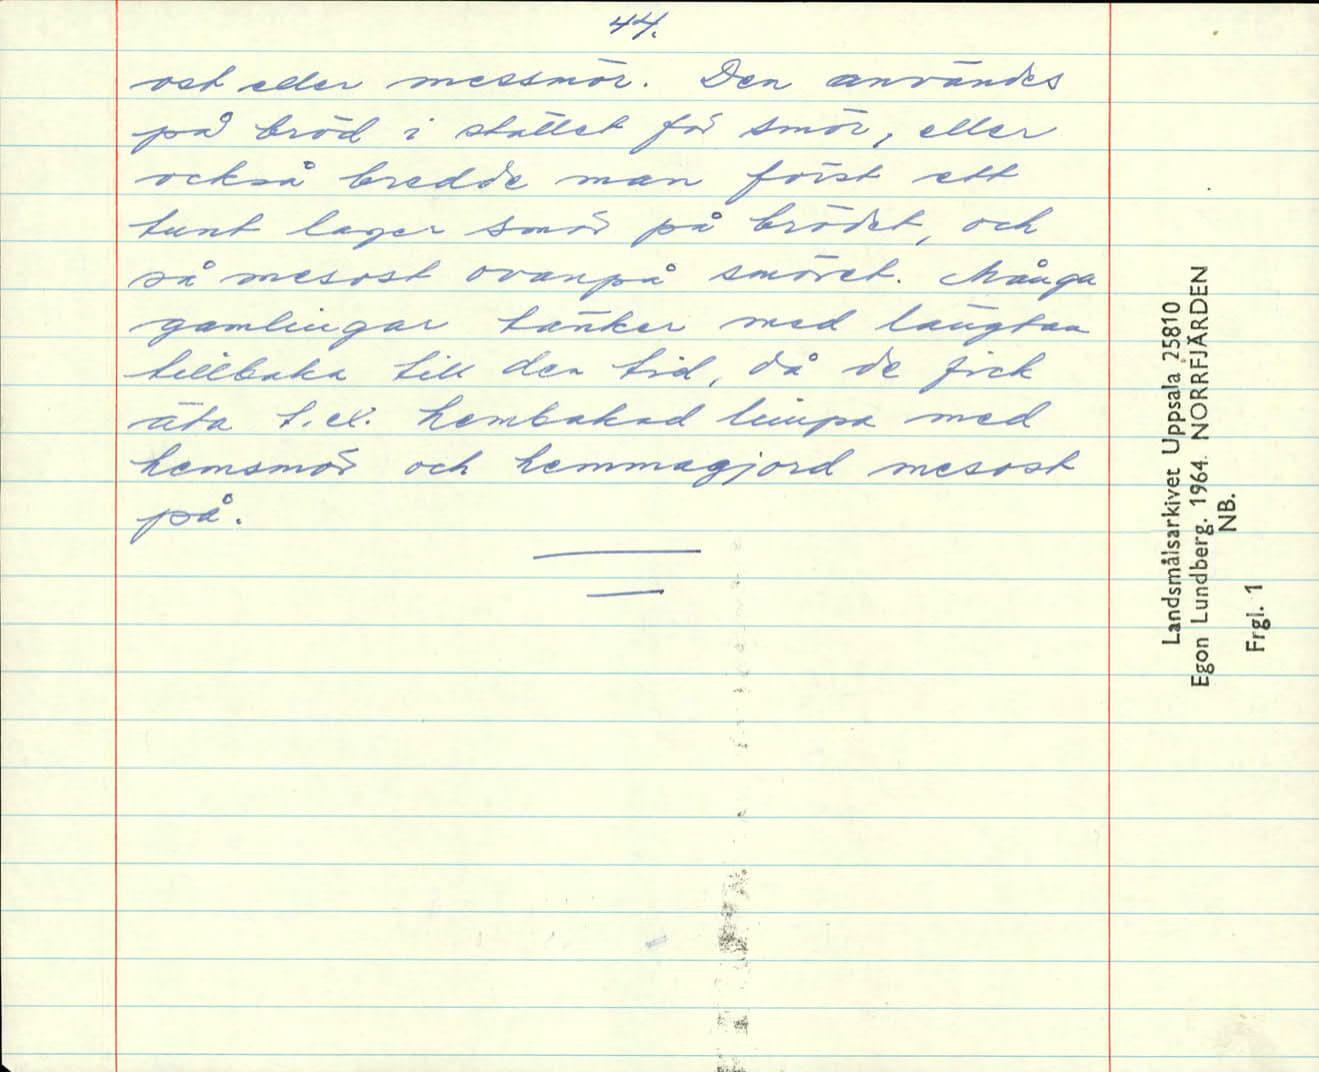 44.
ost eller messmör. Den användes
på bröd i stället för smör, eller
också bredde man först ett
tunt lager smör på brödet, och
så mesost ovanpå smöret. Många
gamlingar tänker med längtan
tillbaka till den tid, då de fick
äta t.ex. hembakad limpa med
hemsmör och hemmagjord mesost
på.
Landsmålsarkivet Uppsala 25810
Egon Lundberg. 1964. NORRFJÄRDEN
NB.
Frgl. 1